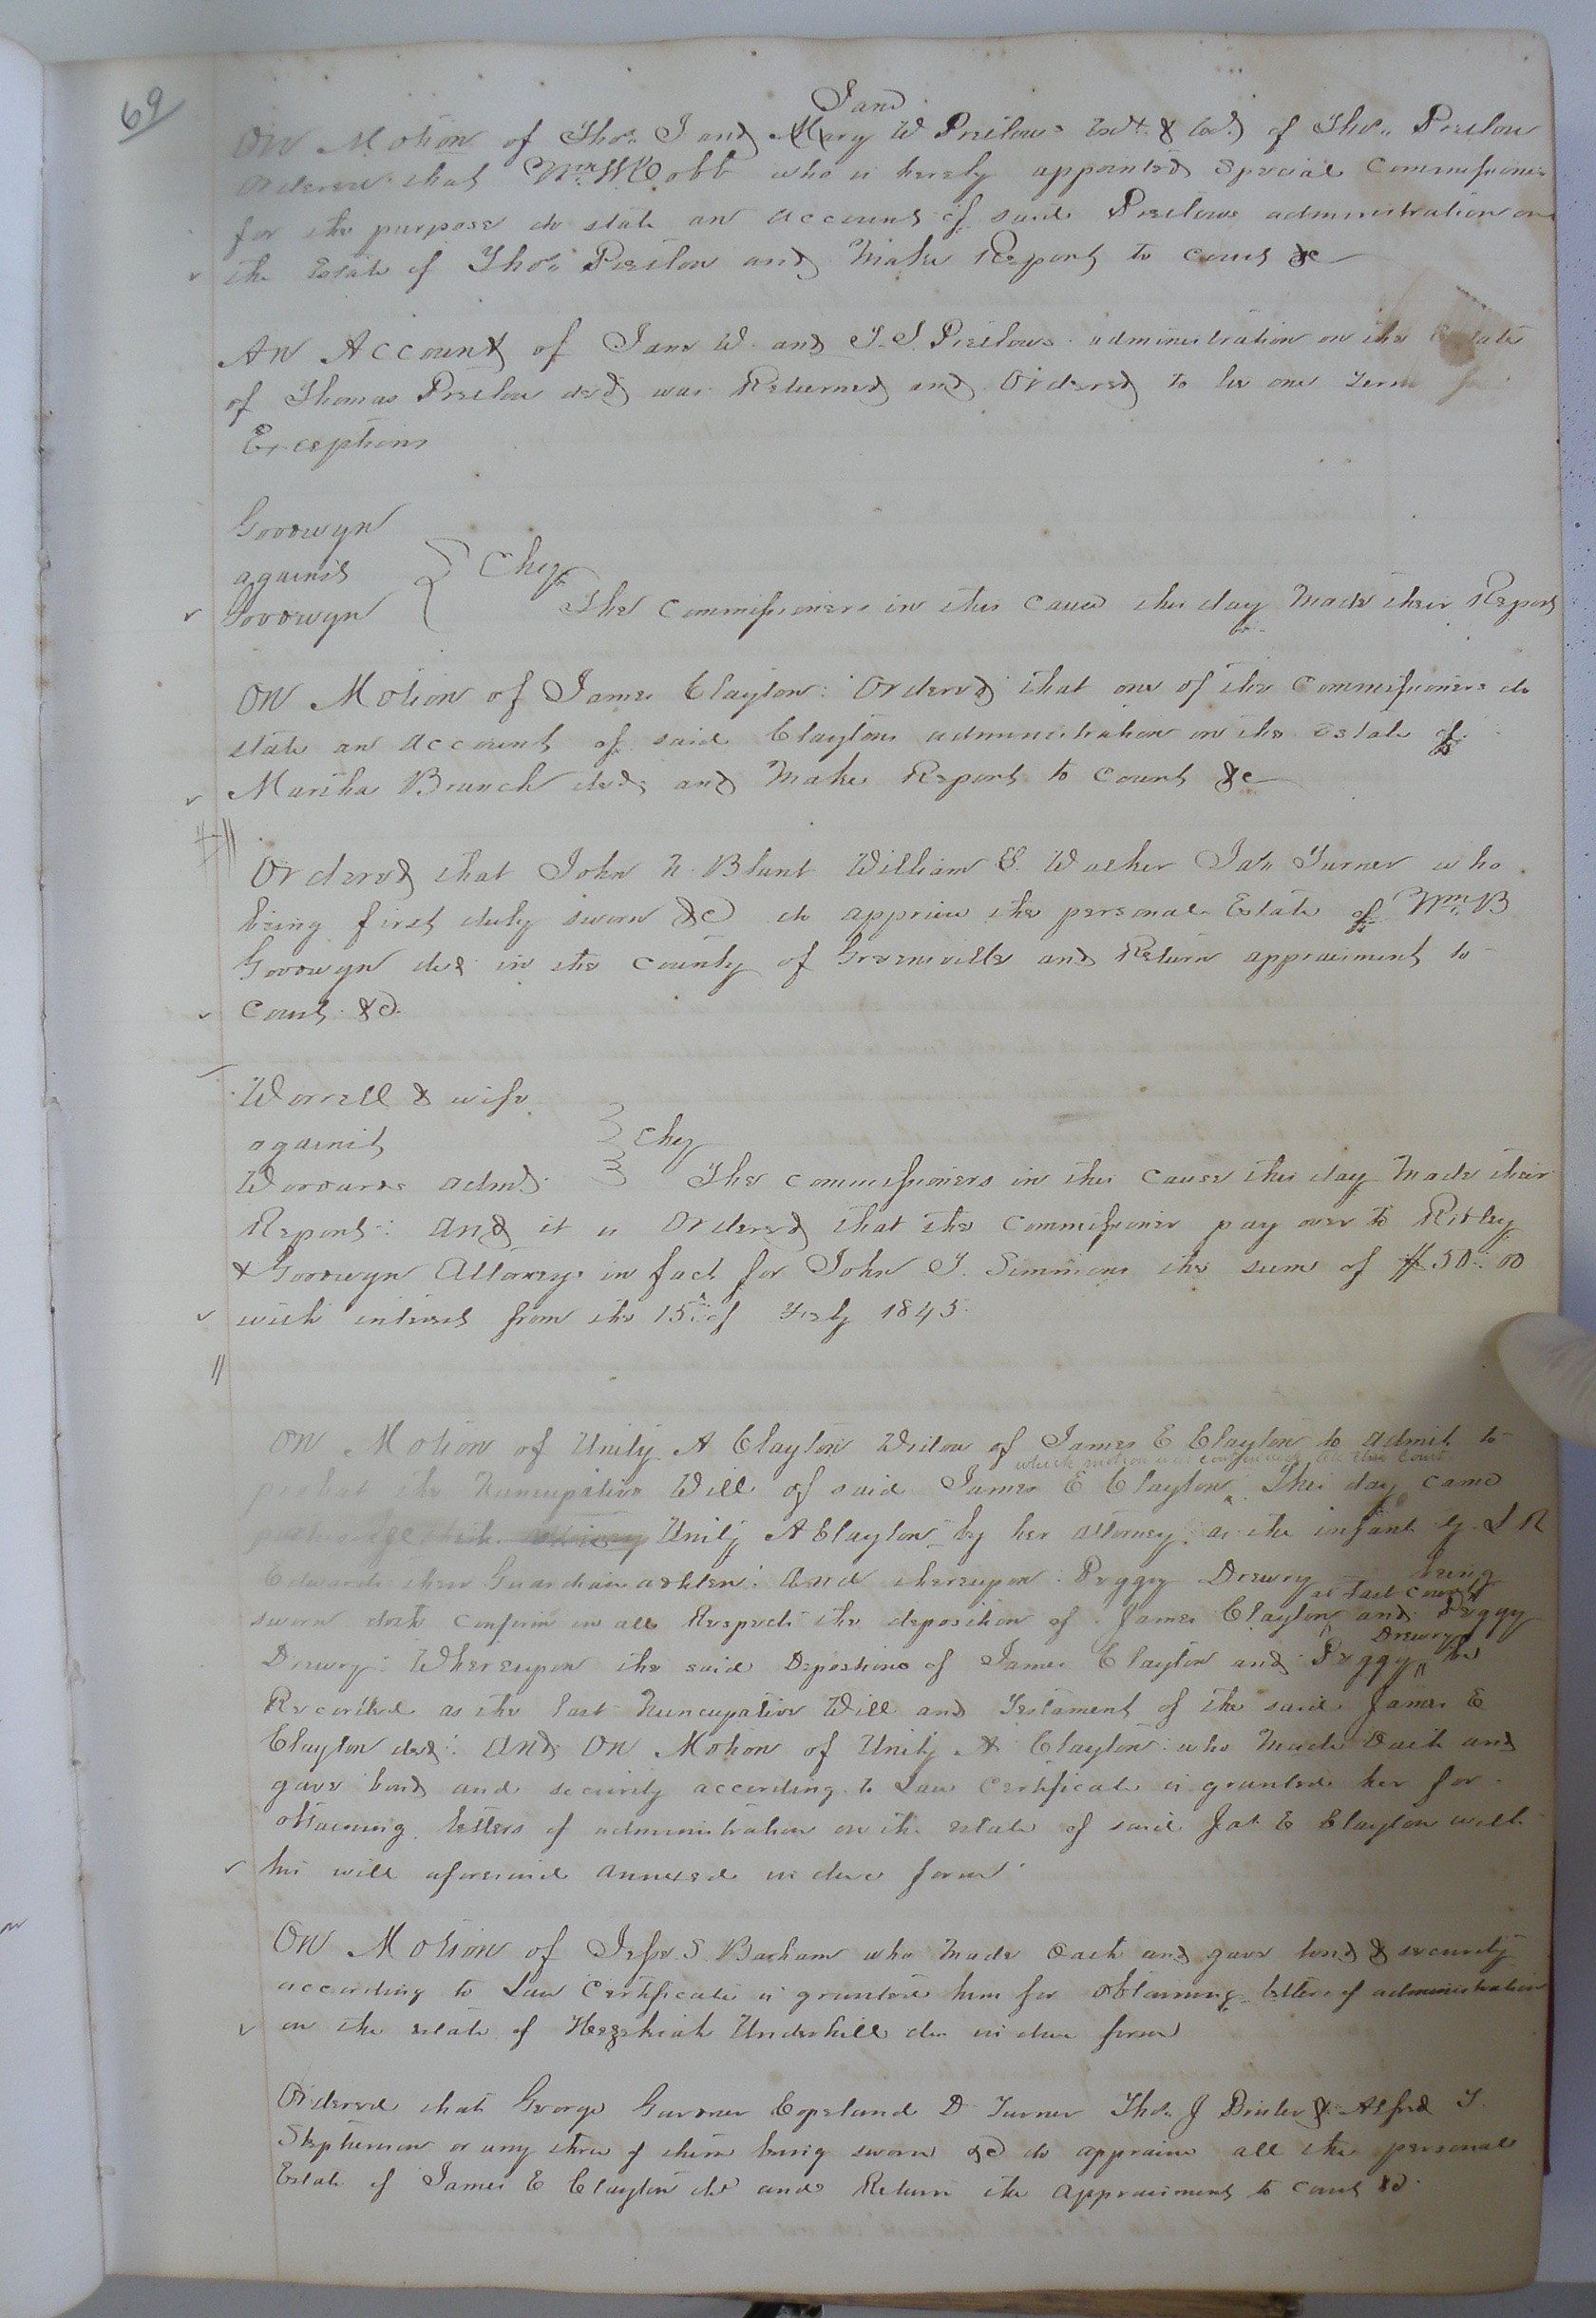 69
Jane
On Motion of Thos. J and Mary W Pretlow Exr. & Exx. of Thos. Pretlow
Ordered that Wm. W Cobb who is hereby appointed Special Commissioner
for the purpose do state an account of said Pretlows administration on
the Estate of Thos. Pretlow and Make Report to Court &c
An Account of Jane W. and T. J. Pretlows administration on the Estate
of Thomas Pretlow decd was Returned and Ordered to lie one Term for
Exceptions
Goodwyn
against Chy
Goodwyn The Commissioners in this cause this day Made their Report
On Motion of James Clayton: Ordered that one of the Commissioners do
state an Account of said Claytons administration on the Estate of
Martha Branch decd; and Make Report to Court &c
Ordered that John N. Blunt William E. Walker Jas. Turner who
being first duly sworn &c do appraise the personal Estate of Wm. B
Goodwyn decd in the County of Greensville and Return appraisment to
Court &c.
Worrell & wife
against Chy
Woodards admr. The Commissioners in this Cause this day Made their
Report: And it is Ordered that the Commissioner pay over to Ridley
& Goodwyn Attorneys in fact for John T. Simmons the sum of $50.00
with interest from the 15th. of Feby 1845.
On Motion of Unity A Clayton Widow of James E Clayton to admit to
which motion was continued till this Court
probat the Nuncupative Will of said James E Clayton This day came
Unity A Clayton by her attorney as the infant by L R
Edwards their Guardian adlitem: And thereupon Peggy Drewry being
at last Court
sworn doth confirm in all Respects the deposition of James Clayton and Peggy
Drewry
Drewry: Whereupon the said Depositions of James Clayton and Peggy be
Recorded as the last Nuncupative Will and Testament of the said James E
Clayton decd: And On Motion of Unity A Clayton who Made Oath and
gave bond and security according to Law Certificate is granted her for
obtaining letters of administration on the estate of said Jas. E Clayton with
his will aforesaid annexed in due form
On Motion of Jesse S Barham who Made Oath and gave bond & security
according to Law Certificate is granted him for obtaining letters of administration
on the estate of Hezekiah Underhill dec in due form
Ordered that George Gardner Copeland D Turner Thos. J Brister & Alfred T.
Stephenson or any three of them being sworn &c do appraise all the personal
Estate of James E Clayton decd and Return the appraisment to Court &c.